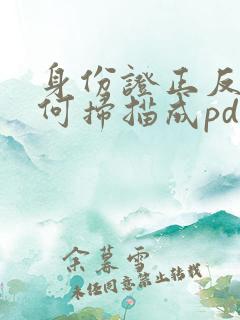 身份證正反
何掃描成pd
余暮雪
未经同意禁止转载